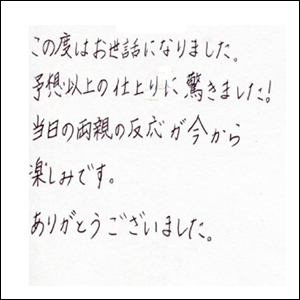 この度はお世話になりました。
予想以上の仕上りに驚きました!
当日の両親の反応が今から
楽しみです。
ありがとうございました。